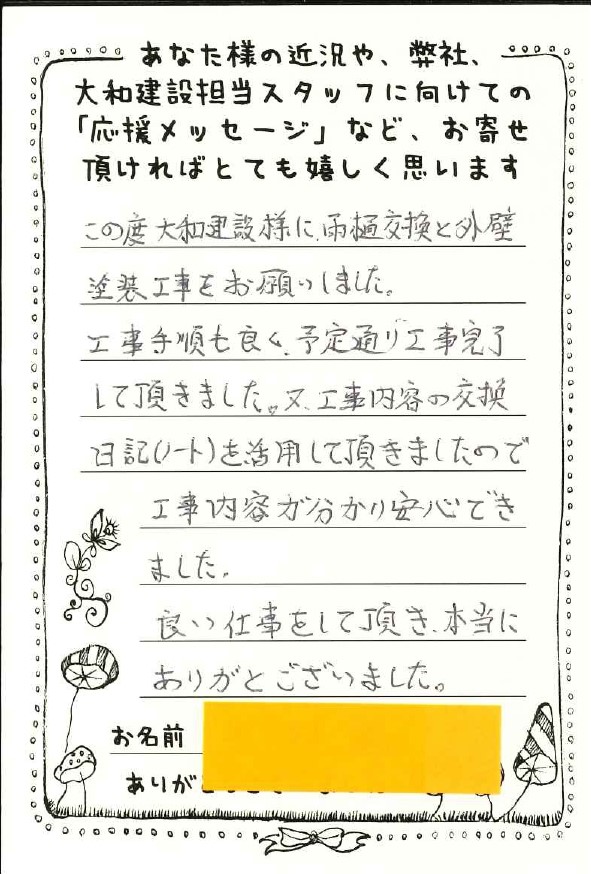 あなた様の近況や、弊社、
大和建設担当スタッフに向けての
「応援メッセージ」など、お寄せ
頂ければとても嬉しく思います
この度大和建設様に、雨樋交換と外壁
塗装工事をお願いしました。
工事手順も良く、予定通り工事完了
して頂きました。又、工事内容の交換
日記(ノート)を活用して頂きましたので
工事内容が分かり安心でき
ました。
良い仕事をして頂き、本当に
ありがとございました。
お名前
ありが